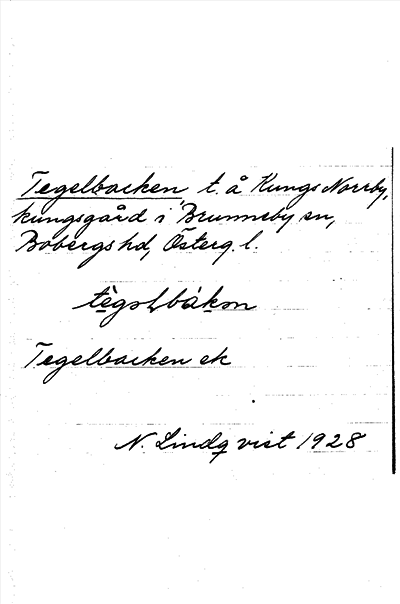 Tegelbacken t. å Kungs Norrby,
kungsgård i Brunneby sn,
Bobergs hd, Österg. l.
Tegelbacken ek
N. Lindqvist 1928